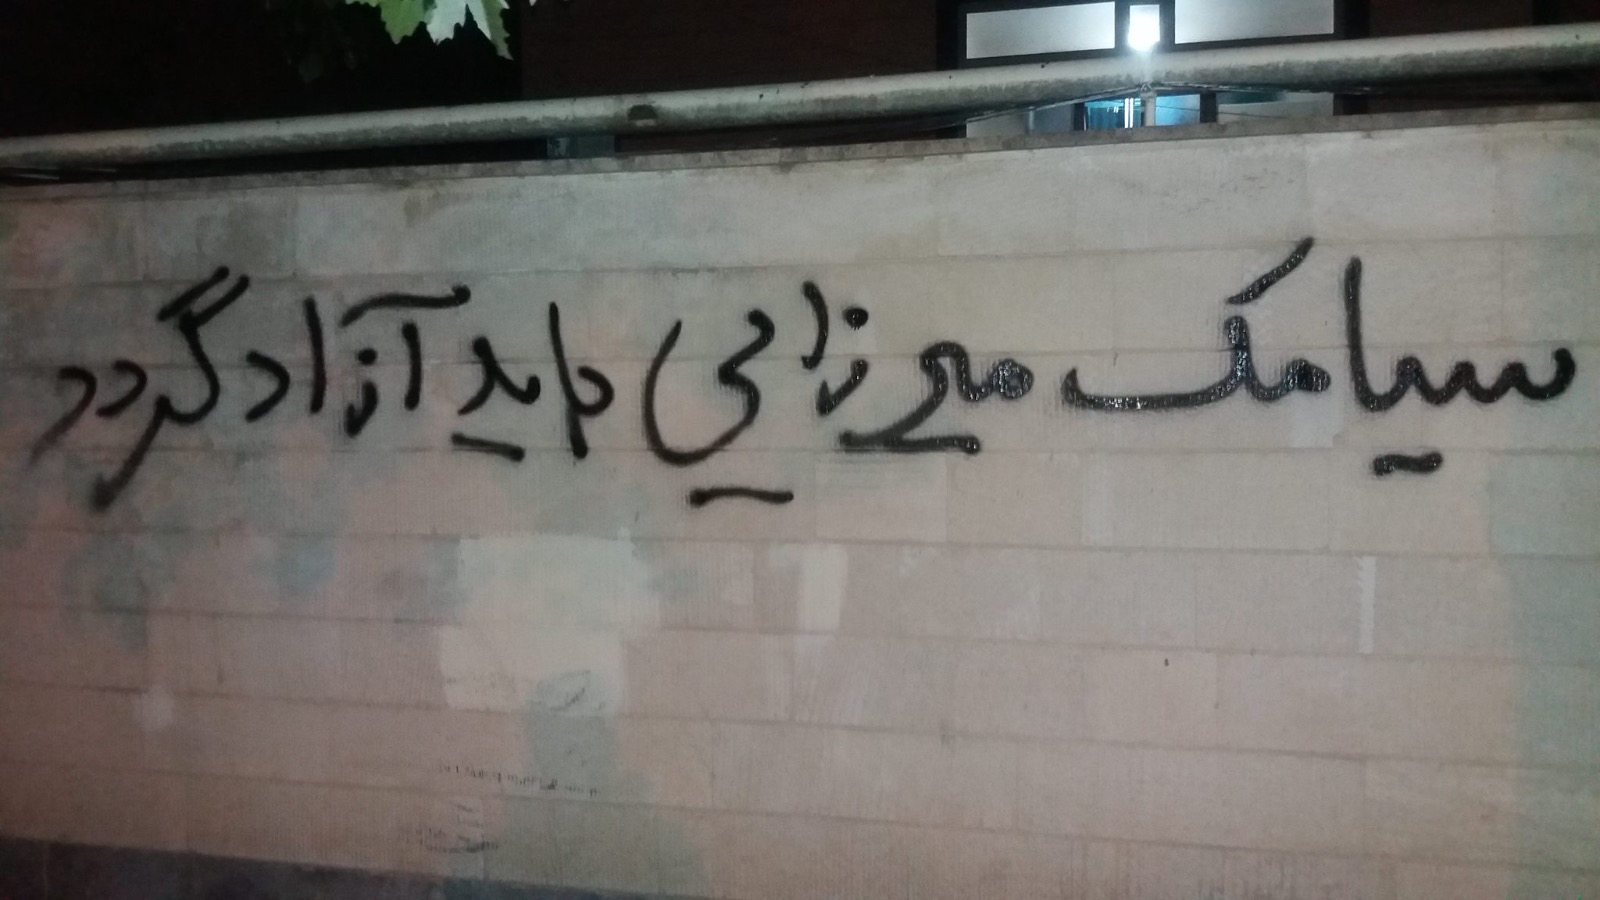 سیامک میرزایی باید آزاد گردد